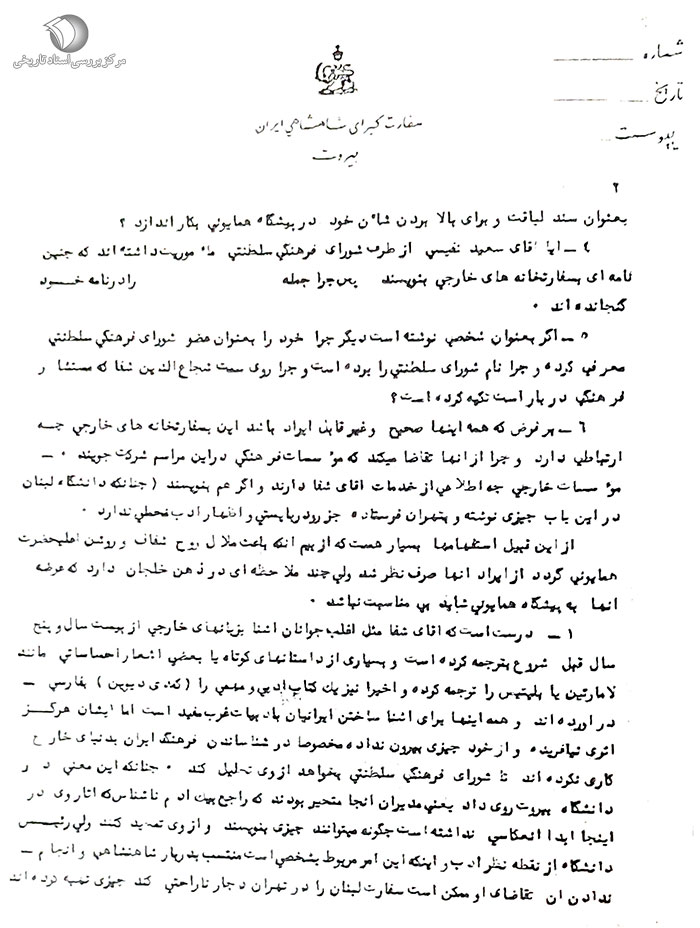 مرکز بررسی اسناد تاریخی
شماره
تاریخ
پیوست
سفارت کبرای شاهنشاهي ایران
بیروت
۲
بعنوان سند لیاقت و برای بالا بردن شان خود در پیشگاه همایوني بکار اندازد ؟
٤ ــ ایا اقای سعید نفیسي از طرف شورای فرهنگي سلطنتي ماموریت داشته اند که چنین
نامه ای بسفارتخانه های خارجي بنویسند پس چرا جمله رادرنامه خود
گنجانده اند ۰
٥ ــ اگر بعنوان شخصي نوشته است دیگر چرا خود را بعنوان عضو شورای فرهنگي سلطنتي
معرفي کرده و چرا نام شورای سلطنتي را برده است و چرا روی سمت شجاع الدین شفا که مستشار
فرهنگي دربار است تکیه کرده است؟
٦ ــ بر فرض که همه اینها صحیح و غیر قابل ایراد باشد این بسفارتخانه های خارجي چه
ارتباطي دارد و چرا از انها تقاضا میکند که موسسات فرهنگي دراین مراسم شرکت جویند ۰ ــ
موسسات خارجي چه اطلاعي از خدمات اقای شفا دارند و اگر هم بنویسند (چنانکه دانشگاه لبنان
در این باب چیزی نوشته و بتهران فرستاده جز رودربایستي و اظهار ادب محملي ندارد ۰
از این قبیل استفهامها بسیار هست که از بیم انکه باعث ملال روح شفاف و روشن اعلیحضرت
همایوني گردد از ایراد انها صرف نظر شد ولي چند ملاحظه ای در ذهن خلجان دارد که عرضه
انها به پیشگاه همایوني شاید بي مناسبت نباشد ۰
۱ ــ درست است که اقای شفا مثل اغلب جوانان اشنا بزبانهای خارجي از بیست سال و پنج
سال قبل شروع بترجمه کرده است و بسیاری از داستانهای کوتاه یا بعضي اشعار احساساتي مانند
لامارتین یا بلیتیس را ترجمه کرده و اخیرا نیز یك کتاب ادبي و مهمي را (کمدی دیوین) بفارسي ــ
در اورده اند و همه اینها برای اشنا ساختن ایرانیان بادبیات غرب مفید است اما ایشان هرگز
اثری نیافریده و از خود چیزی بیرون نداده مخصوصا در شناساندن فرهنگ ایران بدنیای خارج
کاری نکرده اند تا شورای فرهنگي سلطنتي بخواهد از وی تجلیل کند ۰ چنانکه این معني در
دانشگاه بیروت روی داد یعني مدیران انجا متحیر بودند که راجع بیك ادم ناشناس که اثار وی در
اینجا ابدا انعکاسي نداشته است چگونه میتوانند چیزی بنویسند و از وی تمجید کنند ولي رئیس
دانشگاه از نقطه نظر ادب و اینکه این امر مربوط بشخصي است منتسب بدربار شاهنشاهي و انجام ــ
ندادن ان تقاضای او ممکن است سفارت لبنان را در تهران دچار ناراحتي کند چیزی تهیه کرده اند